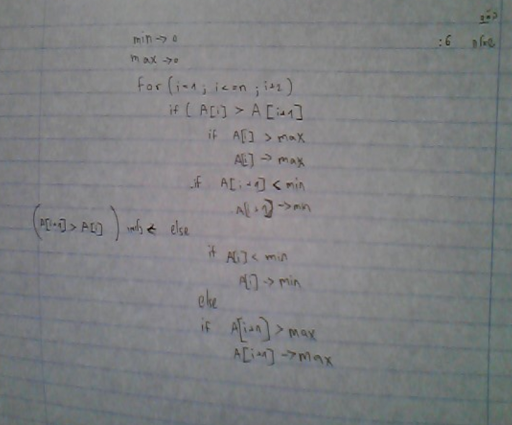 :6
min → 0
max → 0
for (i=1 ; i<=n ; i+2)
if ( A[i] > A[i+1]
if A[i] > max
A[i] → max
if A[i+1] < min
A[i+1] → min
(A[i+1] > A[i]) else
if A[i] < min
A[i] → min
else
if A[i+1] > max
A[i+1] → max